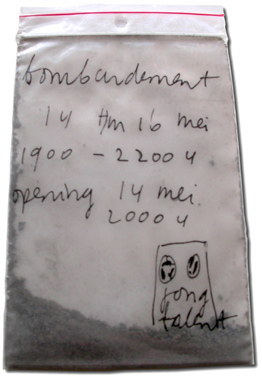 bombardement
14 t/m 16 mei
1900 - 2200 u
opening 14 mei.
2000 u
jong
talent